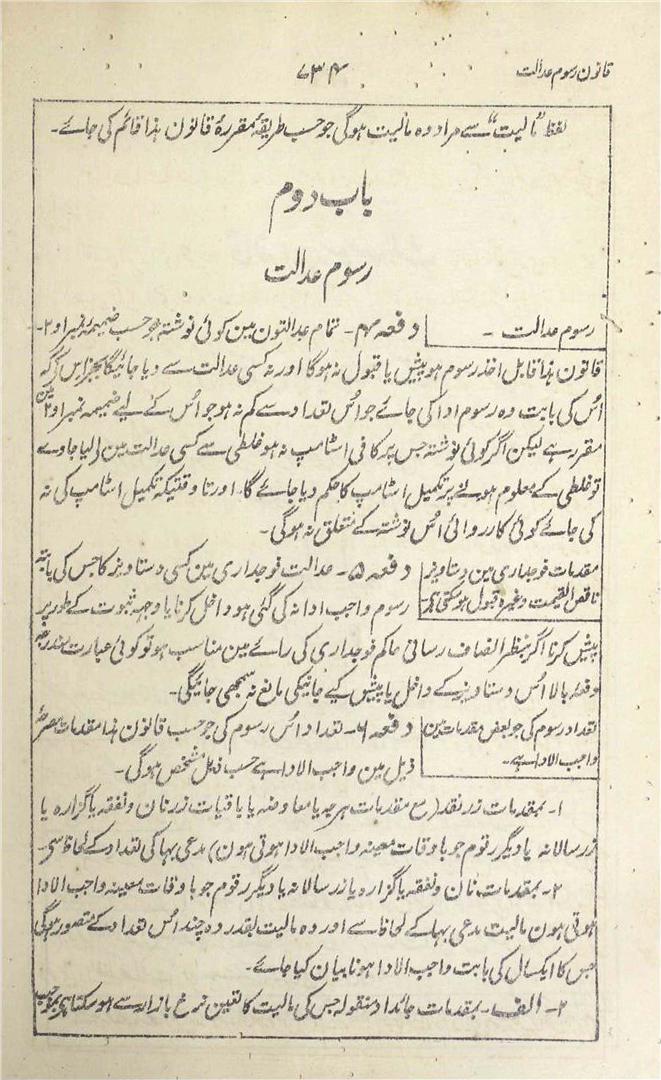 قانون رسوم عدالت
۷۳۴
لفظ "مالیت" سے مراد وہ مالیت ہوگی جو حسب طریقۂ مقررۂ قانون ہذا قائم کی جائے۔
باب دوم
رسوم عدالت
رسوم عدالت ۔
دفعہ ۴۔ تمام عدالتون مین کوئی نوشتہ جو حسب ضمیمہ نمبر ۱ و ۲۔
قانون ہذا قابل اخذ رسوم ہو پیش یا قبول نہ ہوگا اور نہ کسی عدالت سے دیا جائیگا بجز اس کے کہ
اُس کی بابت وہ رسوم ادا کی جائے جو اُس تعداد سے کم نہ ہو جو اُس کے لیے ضمیمہ نمبر ۱ و ۲ مین
مقرر ہے لیکن اگر کوئی نوشتہ جس پر کافی اسٹامپ نہ ہو غلطی سے کسی عدالت مین لے لیا جاوے
تو غلطی کے معلوم ہونے پر تکمیل اسٹامپ کا حکم دیا جائے گا، اور تا وقتیکہ تکمیل اسٹامپ کی نہ
کی جائے کوئی کارروائی اُس نوشتہ کے متعلق نہ ہوگی۔
مقدمات فوجداری مین دستاویز
ناقص القیمت وغیرہ قبول ہوسکتی ہے
دفعہ ۵۔ عدالت فوجداری مین کسی دستاویز کا جس کی بابتہ
رسوم واجب ادا نہ کی گئی ہو داخل کرنا یا وجہ ثبوت کے طور پر
پیش کرنا اگر بنظر انصاف رسانی حاکم فوجداری کی رائے مین مناسب ہو تو کوئی عبارت مندرجہ
دفعہ بالا اُس دستاویز کے داخل یا پیش کیے جانیکی مانع نہ سمجھی جائیگی۔
تعداد رسوم کی جو بعض مقدمات مین
واجب الادا ہے۔
دفعہ ۶۔ تعداد اُس رسوم کی جو حسب قانون ہذا مقدمات مصرحۂ
ذیل مین واجب الادا ہے حسب ذیل مشخص ہوگی۔
۱۔ بمقدمات زر نقد (مع مقدمات ہرجہ یا معاوضہ یا باقیات زر نان و نفقہ یا گزارہ یا
زر سالانہ یا دیگر رقوم جو باوقات معینہ واجب الادا ہوتی ہون) مدعی بہا کی تعداد کے لحاظ سے۔
۲۔ بمقدمات نان و نفقہ یا گزارہ یا زر سالانہ یا دیگر رقوم جو باوقات معینہ واجب الادا
ہوتی ہون مالیت مدعی بہا کے لحاظ سے اور وہ مالیت بقدر دہ چند اُس تعداد کے متصور ہوگی
جس کا ایکسال کی بابت واجب الادا ہونا بیان کیا جائے۔
۲۔ الف۔ بمقدمات جائداد منقولہ جس کی مالیت کا تعین نرخ بازار سے ہوسکتا ہو بموجب